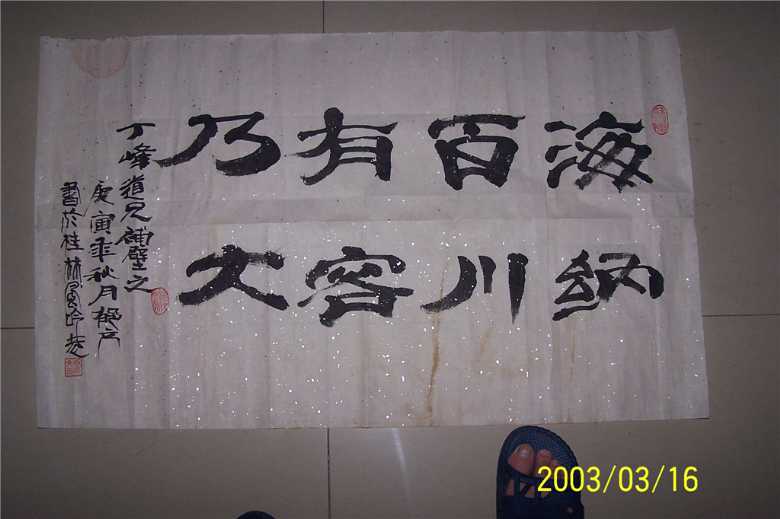 海纳
百川
有容
乃大
丁峰道兄補壁之
庚寅年秋月
書於桂林
2003/03/16